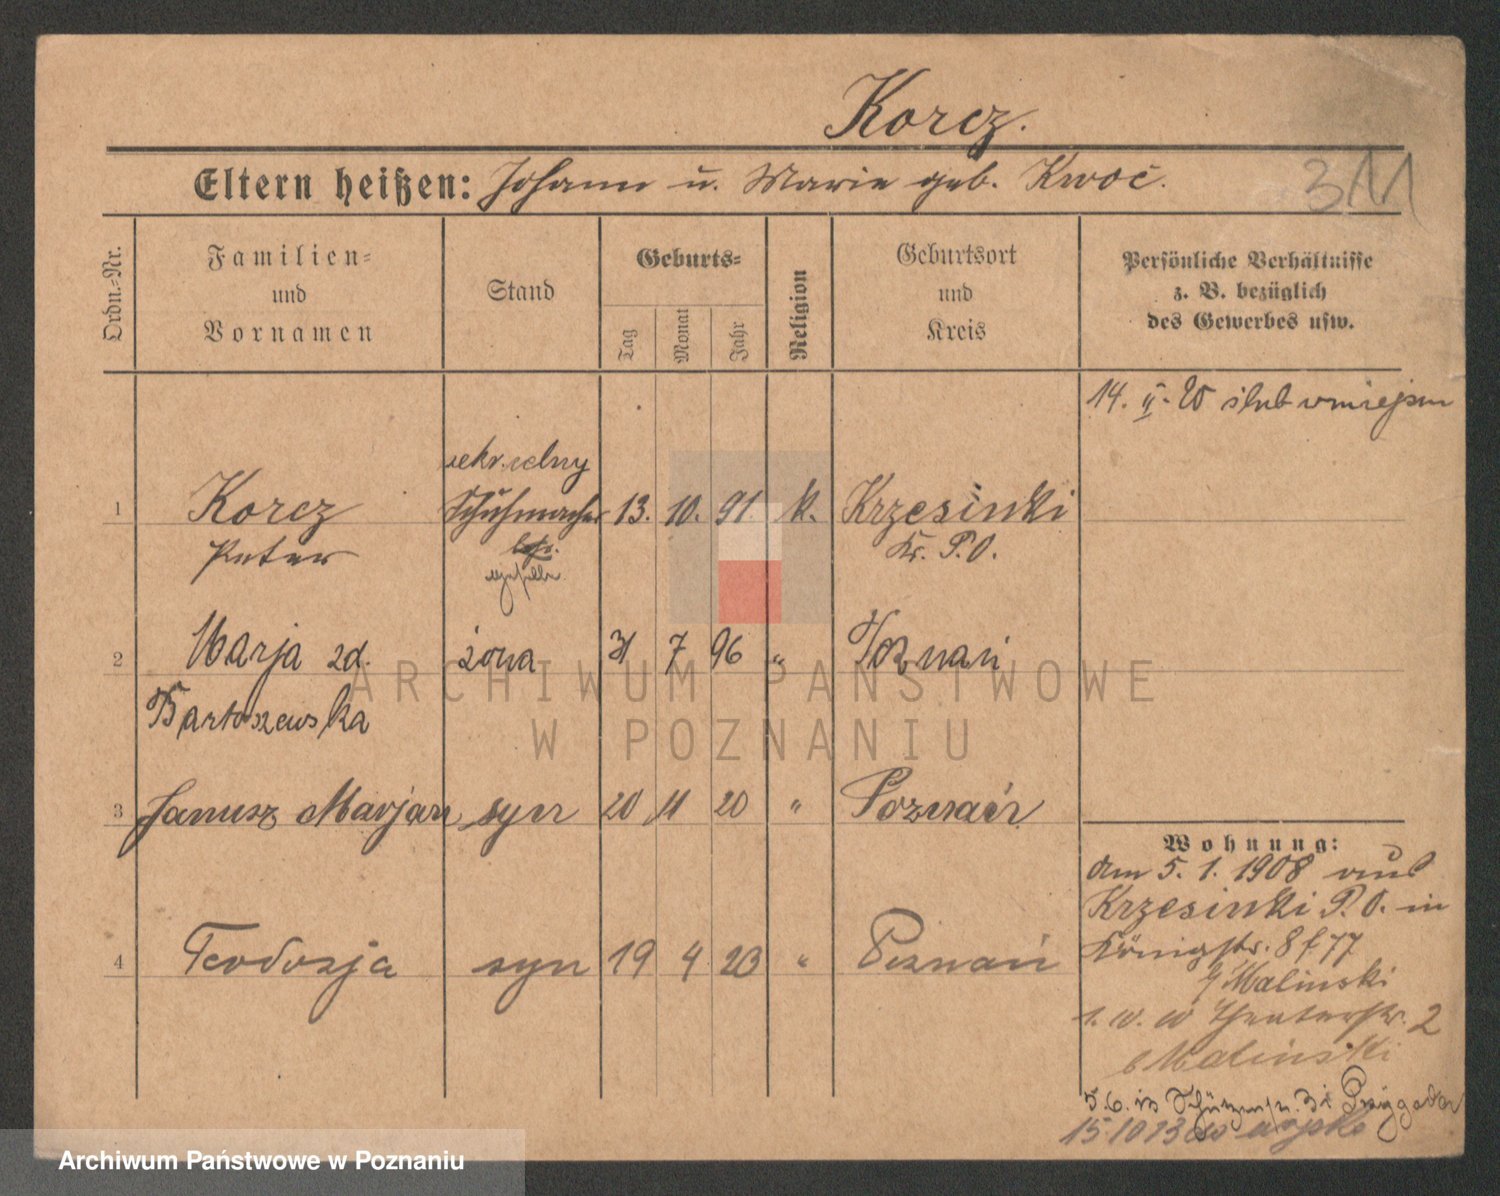 Korcz.
311
Eltern heißen: Johann u. Marie geb. Kwoč.
Ordn.-Nr.
Familien-
und
Vornamen
Stand
Geburts-
Tag
Monat
Jahr
Religion
Geburtsort
und
Kreis
Persönliche Verhältnisse
z. B. bezüglich
des Gewerbes usw.
14. II. 20 ślub
1 Korcz Schuhmacher 13. 10. 91. k. Krzesinki
Peter Kr. P. O.
geselle
2 Marja zd. żona 31 7 96 " Poznań
Bartoszewska
3 Janusz Marjan syn 20 11 20 " Poznań
4 Teodozja syn 19 4 23 " Poznań
Wohnung:
Am 5. 1. 1908 aus
Krzesinki P. O. in
Königstr. 8 f 77
Malinski
Theaterstr. 2
Malinski
5.6. in Schützenstr. 31
15 10 13 do wojska
ARCHIWUM PAŃSTWOWE
W POZNANIU
Archiwum Państwowe w Poznaniu